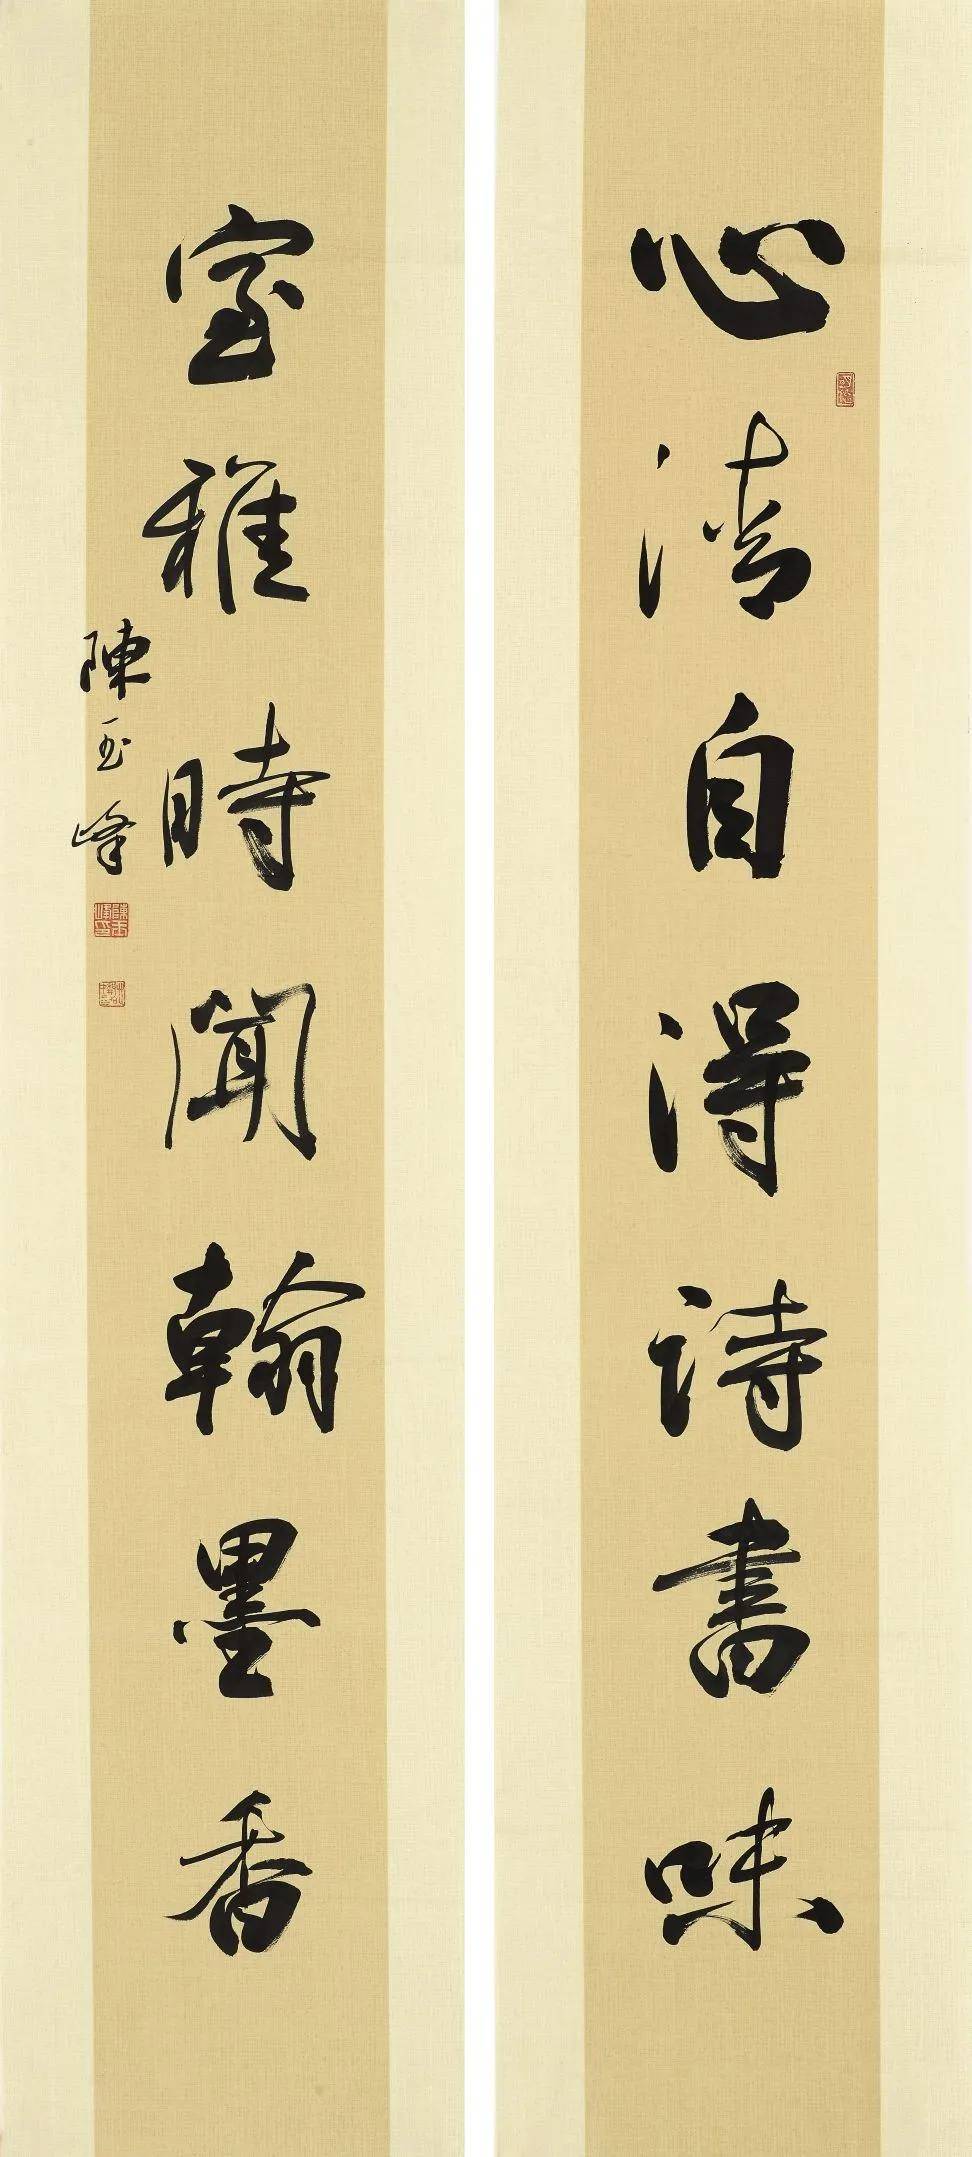 心清自得詩書味
室雅時聞翰墨香
陳玉峰